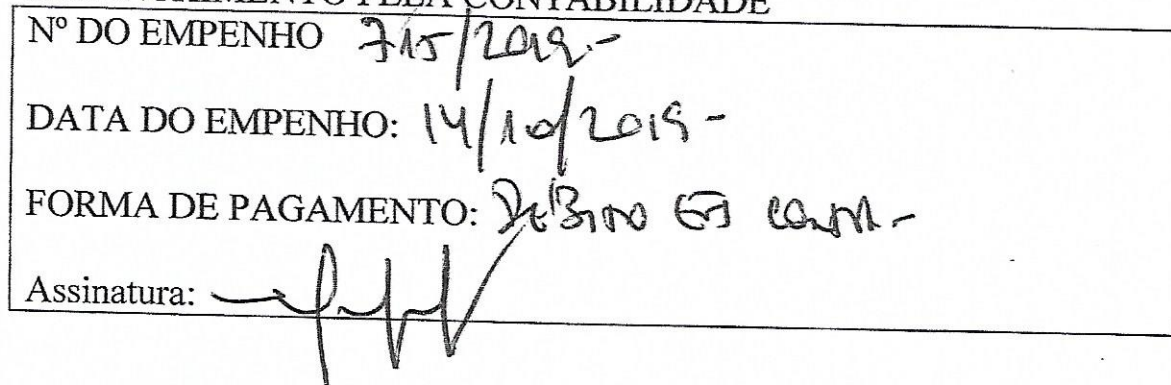 PELA CONTABILIDADE
Nº DO EMPENHO 715/2019-
DATA DO EMPENHO: 14/10/2019-
FORMA DE PAGAMENTO: DEBITO EM CONTA-
Assinatura: